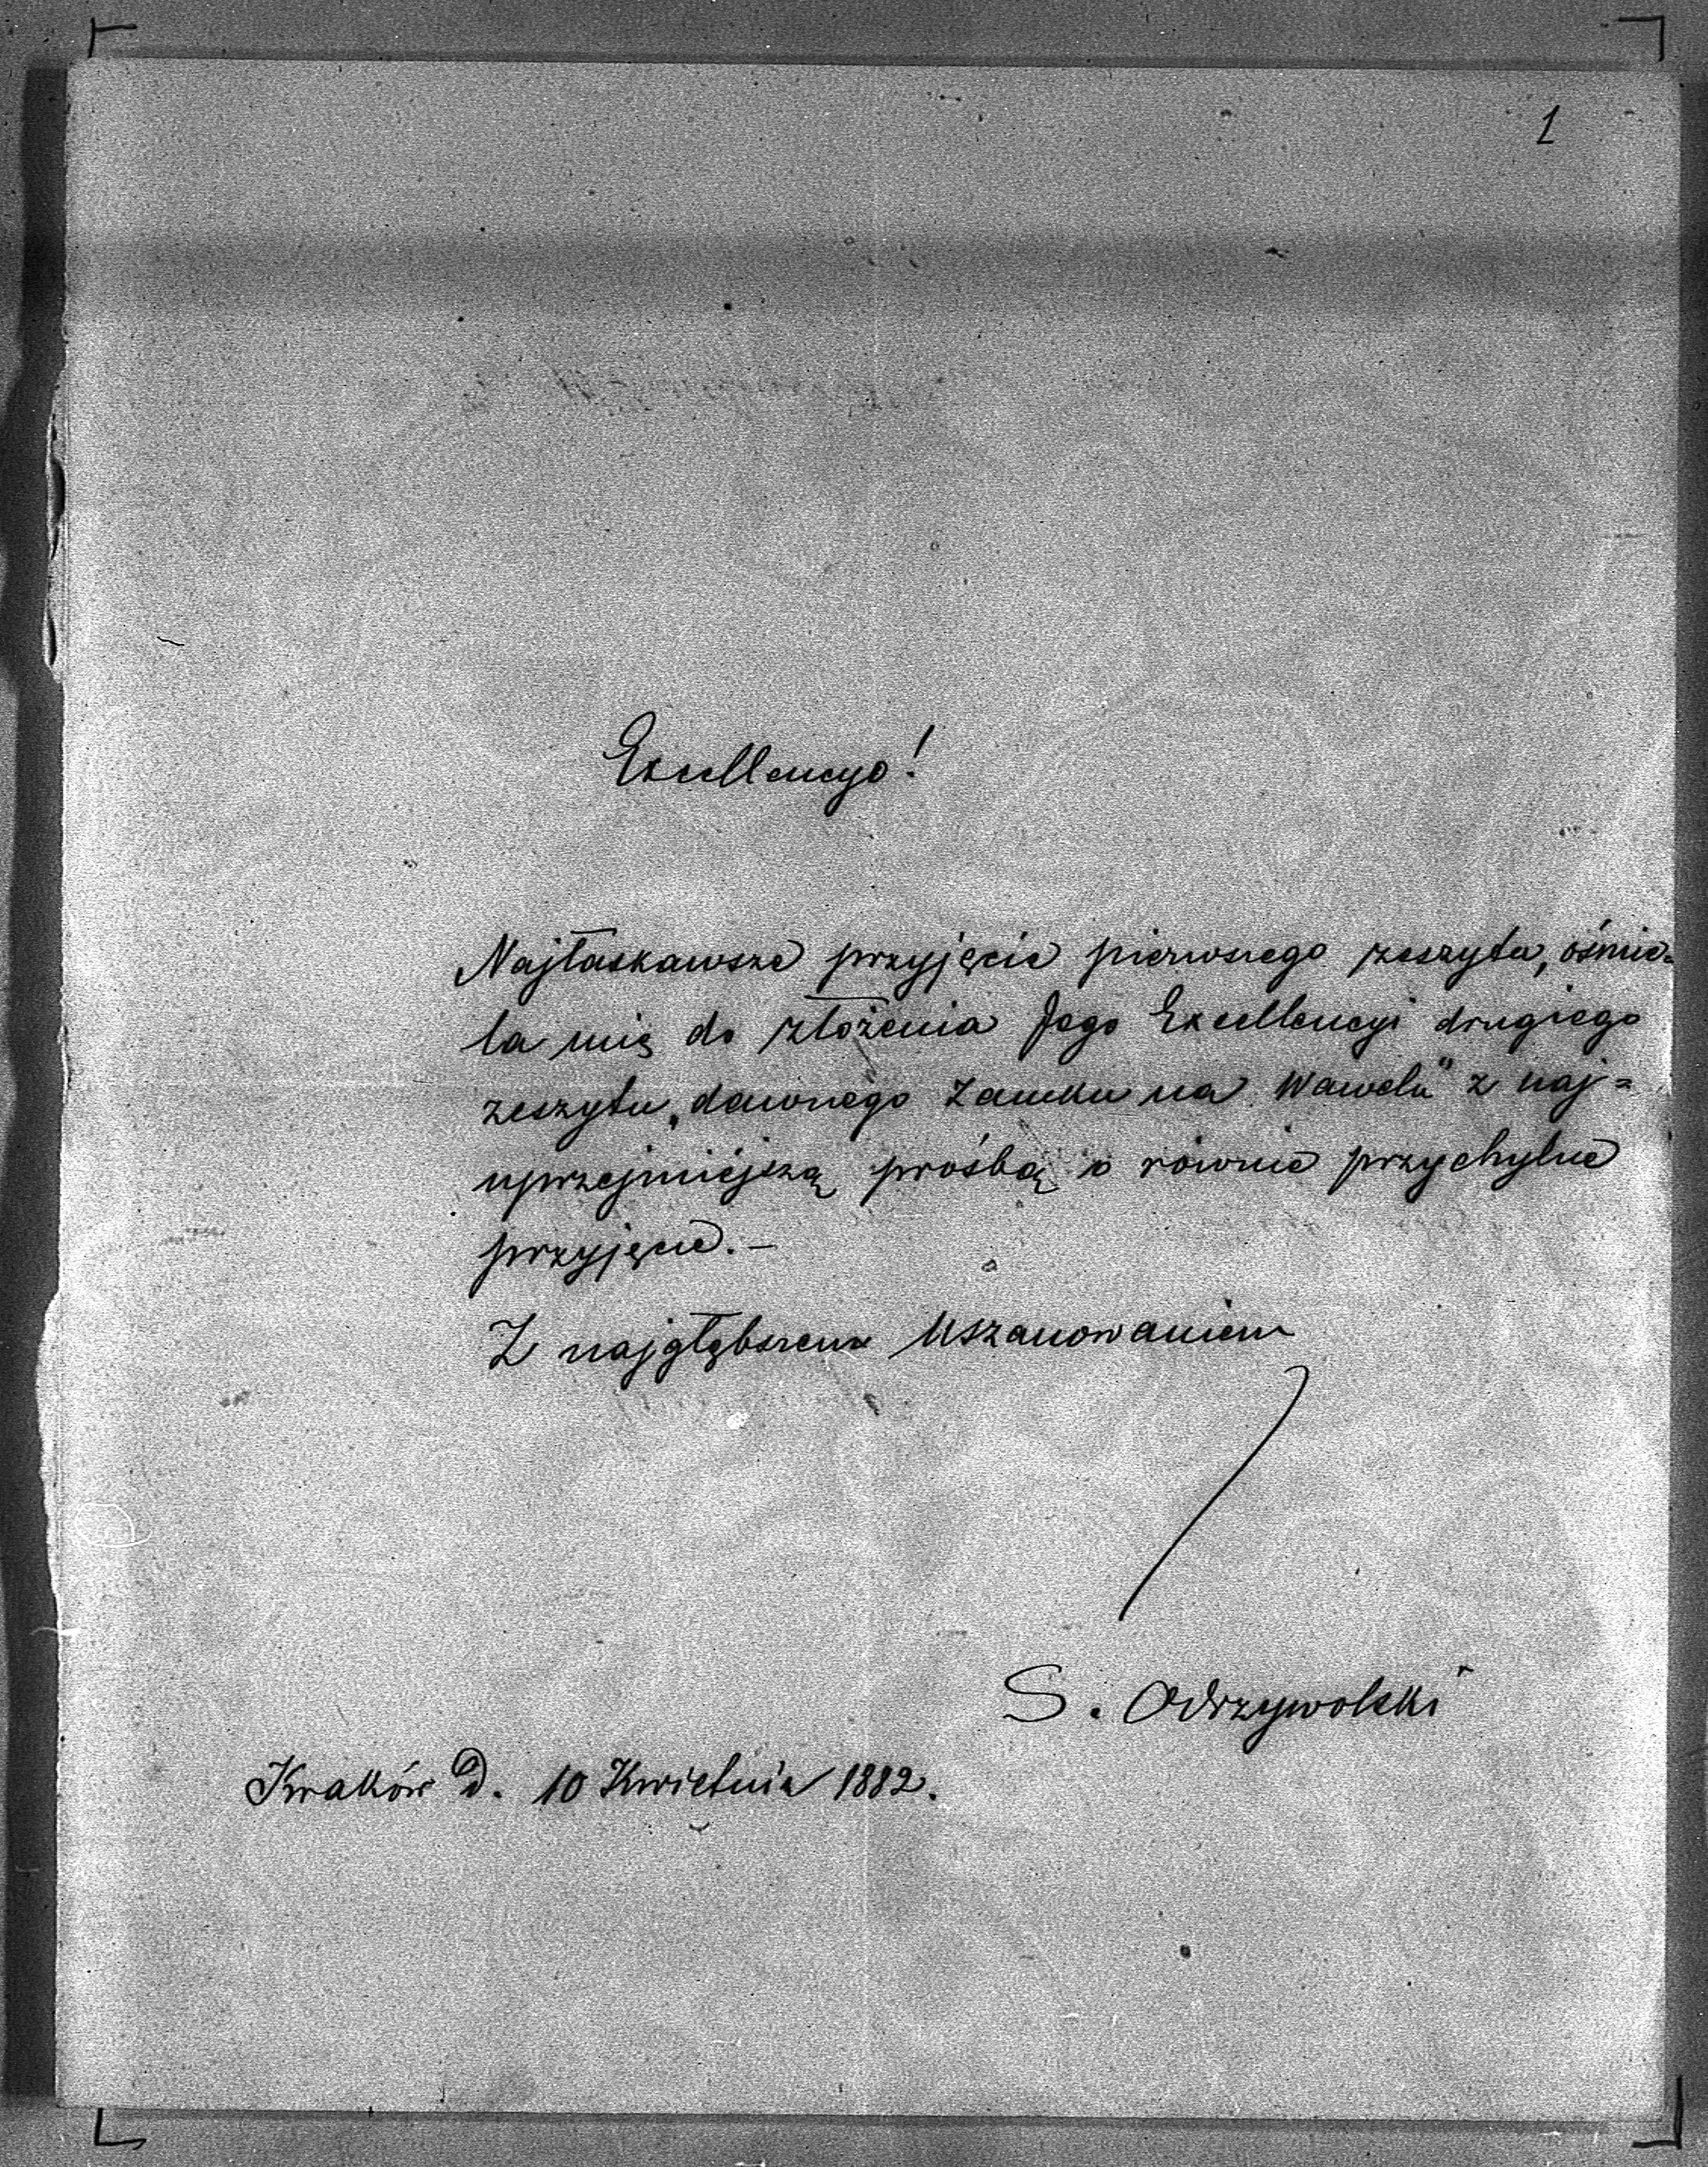 1
Excellencyo!
Najłaskawsze przyjęcie pierwszego zeszytu, ośmie-
la mię do złożenia Jego Excellencyi drugiego
zeszytu „dawnego Zamku na Wawelu" z naj=
uprzejmiejszą prośbą o równie przychylne
przyjęcie. —
Z najgłębszem Uszanowaniem
S. Odrzywolski
Kraków d. 10 Kwietnia 1882.